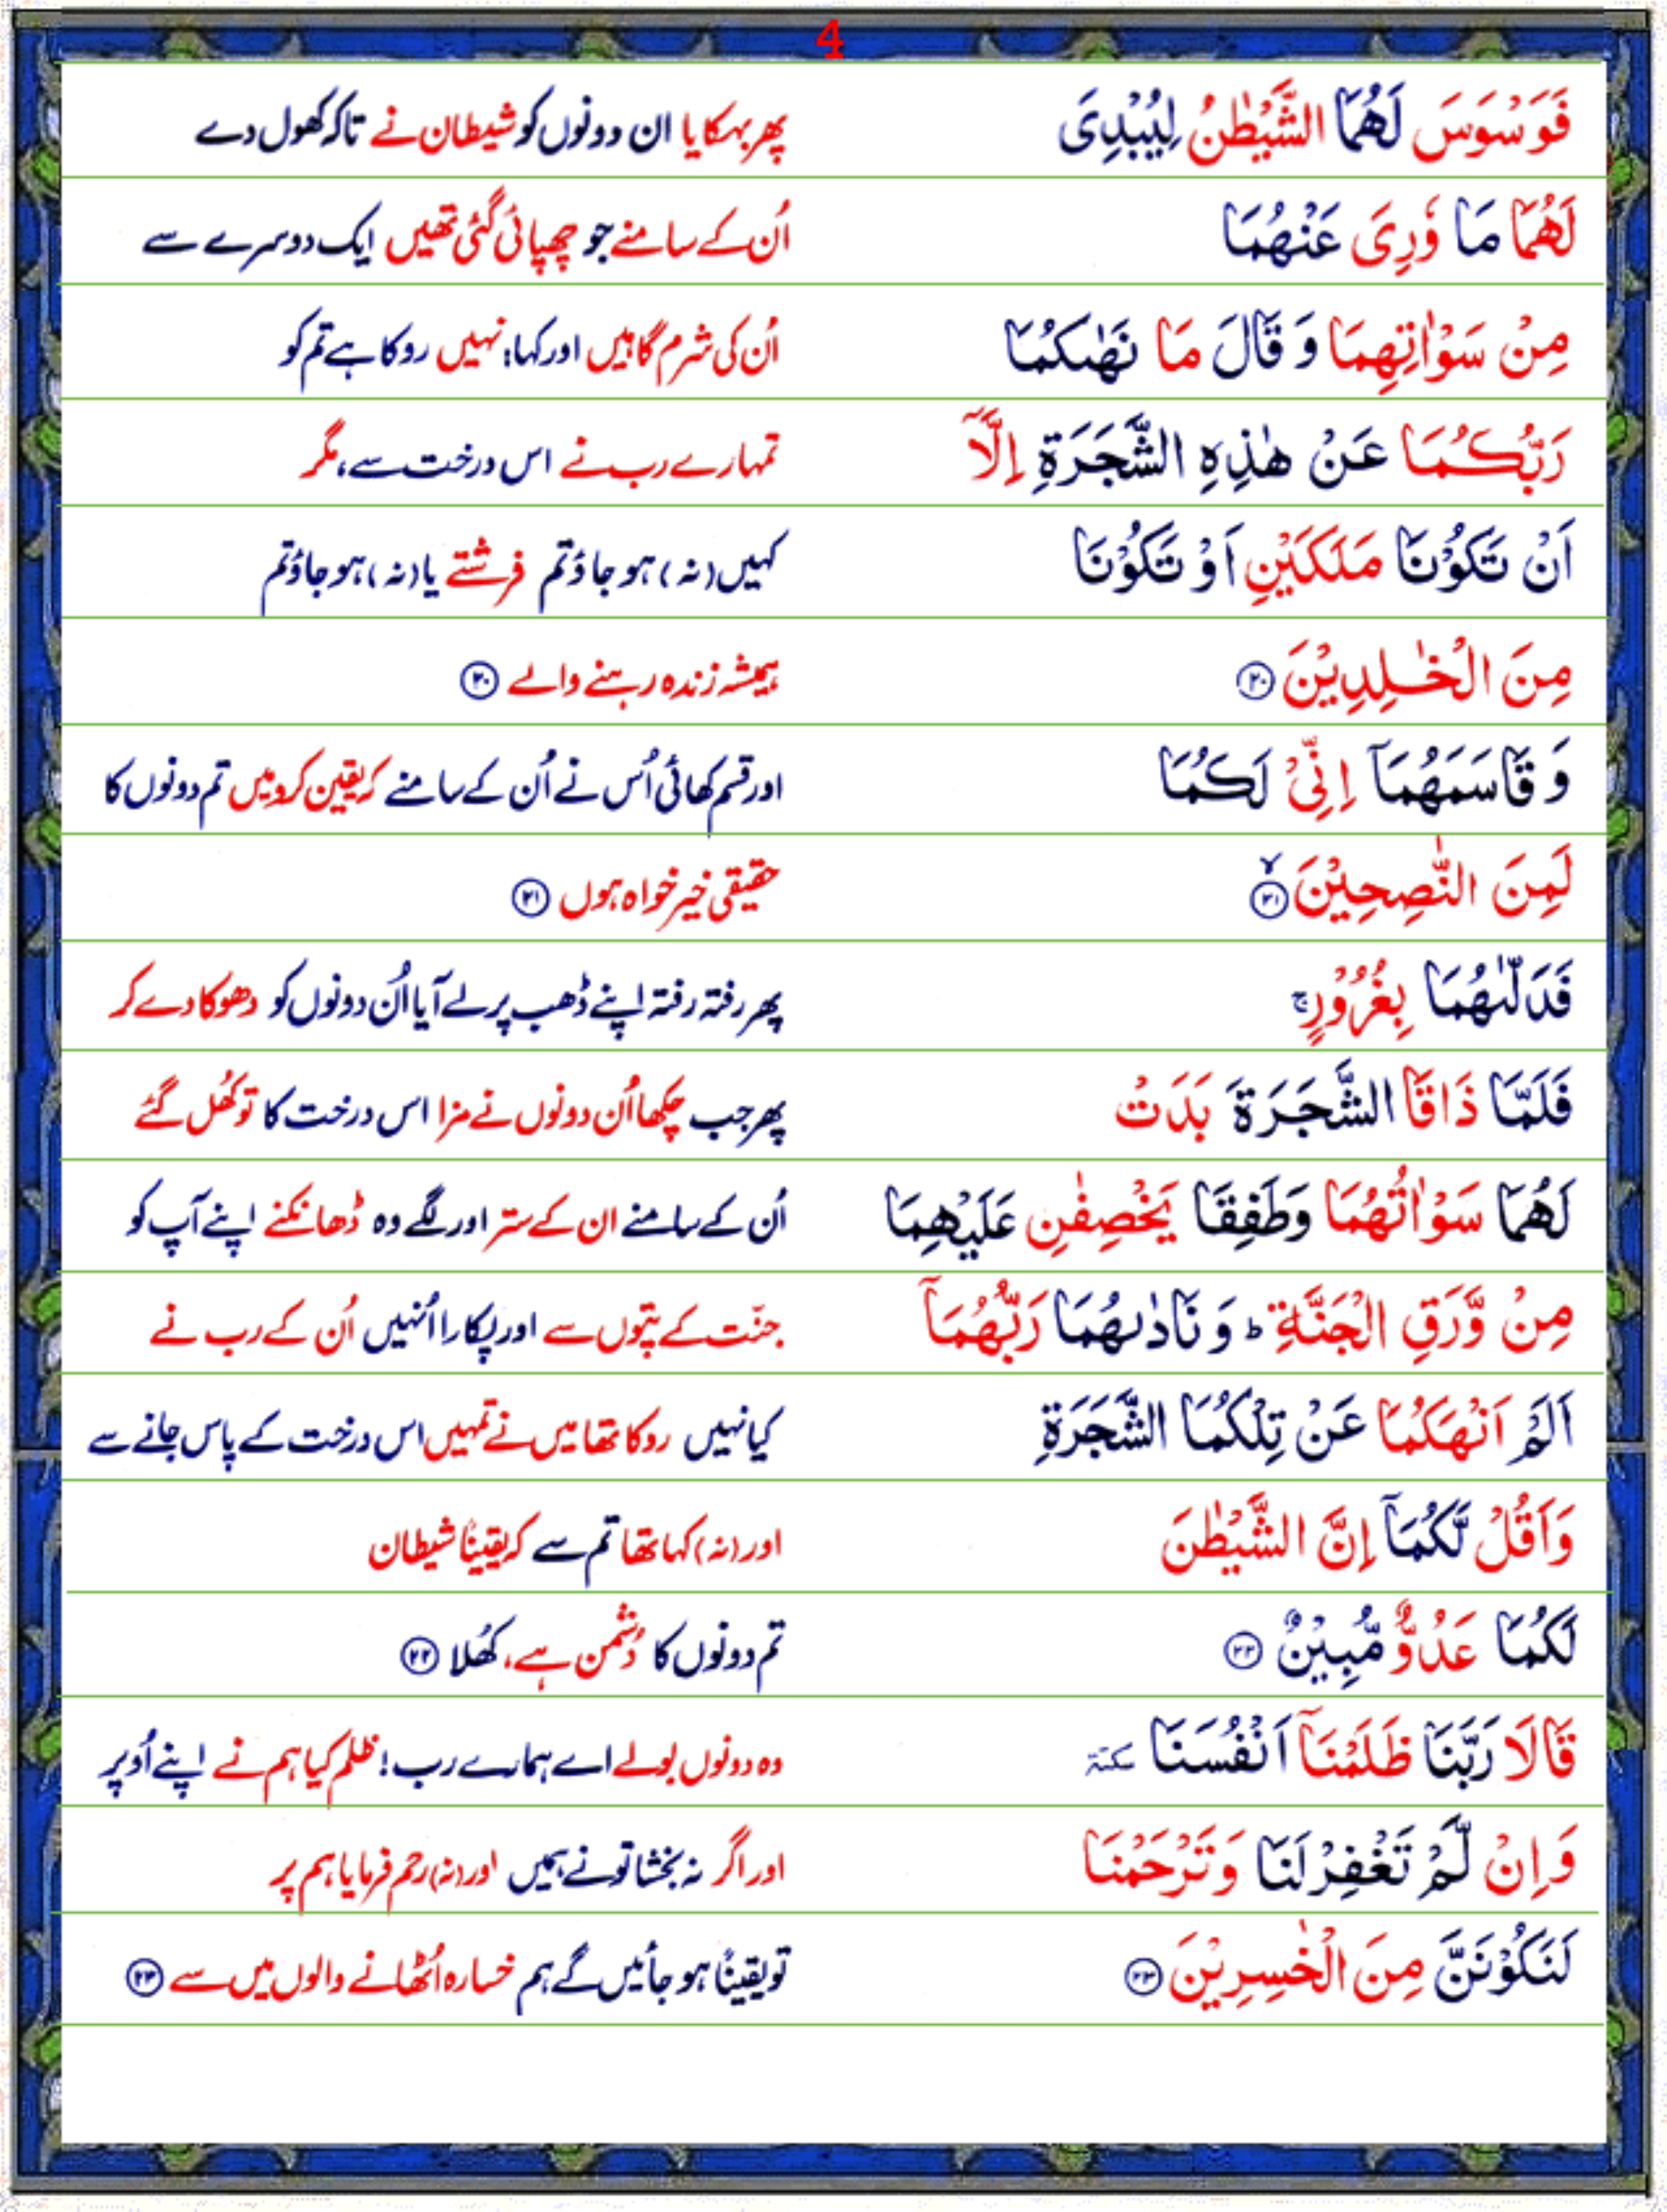 4
فَوَسْوَسَ لَهُمَا الشَّيْطٰنُ لِيُبْدِىَ پھر بہکایا ان دونوں کو شیطان نے تاکہ کھول دے
لَهُمَا مَا وٗرِىَ عَنْهُمَا اُن کے سامنے جو چھپائی گئی تھیں ایک دوسرے سے
مِنْ سَوْاٰتِهِمَا وَ قَالَ مَا نَهٰىكُمَا اُن کی شرم گاہیں اور کہا: نہیں روکا ہے تم کو
رَبُّكُمَا عَنْ هٰذِهِ الشَّجَرَةِ اِلَّاۤ تمہارے رب نے اس درخت سے، مگر
اَنْ تَكُوْنَا مَلَكَيْنِ اَوْ تَكُوْنَا کہیں (نہ) ہو جاؤ تم فرشتے یا (نہ) ہو جاؤ تم
مِنَ الْخٰلِدِيْنَ ۲۰ ہمیشہ زندہ رہنے والے ۲۰
وَ قَاسَمَهُمَاۤ اِنِّىْ لَكُمَا اور قسم کھائی اُس نے اُن کے سامنے کہ یقین کرو میں تم دونوں کا
لَمِنَ النّٰصِحِيْنَ ۙ ۲۱ حقیقی خیر خواہ ہوں ۲۱
فَدَلّٰىهُمَا بِغُرُوْرٍ ۚ پھر رفتہ رفتہ اپنے ڈھب پر لے آیا اُن دونوں کو دھوکا دے کر
فَلَمَّا ذَاقَا الشَّجَرَةَ بَدَتْ پھر جب چکھا اُن دونوں نے مزا اس درخت کا تو کھُل گئے
لَهُمَا سَوْاٰتُهُمَا وَطَفِقَا يَخْصِفٰنِ عَلَيْهِمَا اُن کے سامنے ان کے ستر اور لگے وہ ڈھانکنے اپنے آپ کو
مِنْ وَّرَقِ الْجَنَّةِ ؕ وَ نَادٰىهُمَا رَبُّهُمَاۤ جنّت کے پتّوں سے اور پکارا اُنہیں اُن کے رب نے
اَلَمْ اَنْهَكُمَا عَنْ تِلْكُمَا الشَّجَرَةِ کیا نہیں روکا تھا میں نے تمہیں اس درخت کے پاس جانے سے
وَاَقُلْ لَّكُمَاۤ اِنَّ الشَّيْطٰنَ اور (نہ) کہا تھا تم سے کہ یقیناً شیطان
لَكُمَا عَدُوٌّ مُّبِيْنٌ ۲۲ تم دونوں کا دُشمن ہے، کھُلا ۲۲
قَالَا رَبَّنَا ظَلَمْنَاۤ اَنْفُسَنَا سکتة وہ دونوں بولے اے ہمارے رب! ظلم کیا ہم نے اپنے اُوپر
وَاِنْ لَّمْ تَغْفِرْ لَنَا وَتَرْحَمْنَا اور اگر نہ بخشا تو نے ہمیں اور (نہ) رحم فرمایا ہم پر
لَنَكُوْنَنَّ مِنَ الْخٰسِرِيْنَ ۲۳ تو یقیناً ہو جائیں گے ہم خسارہ اُٹھانے والوں میں سے ۲۳